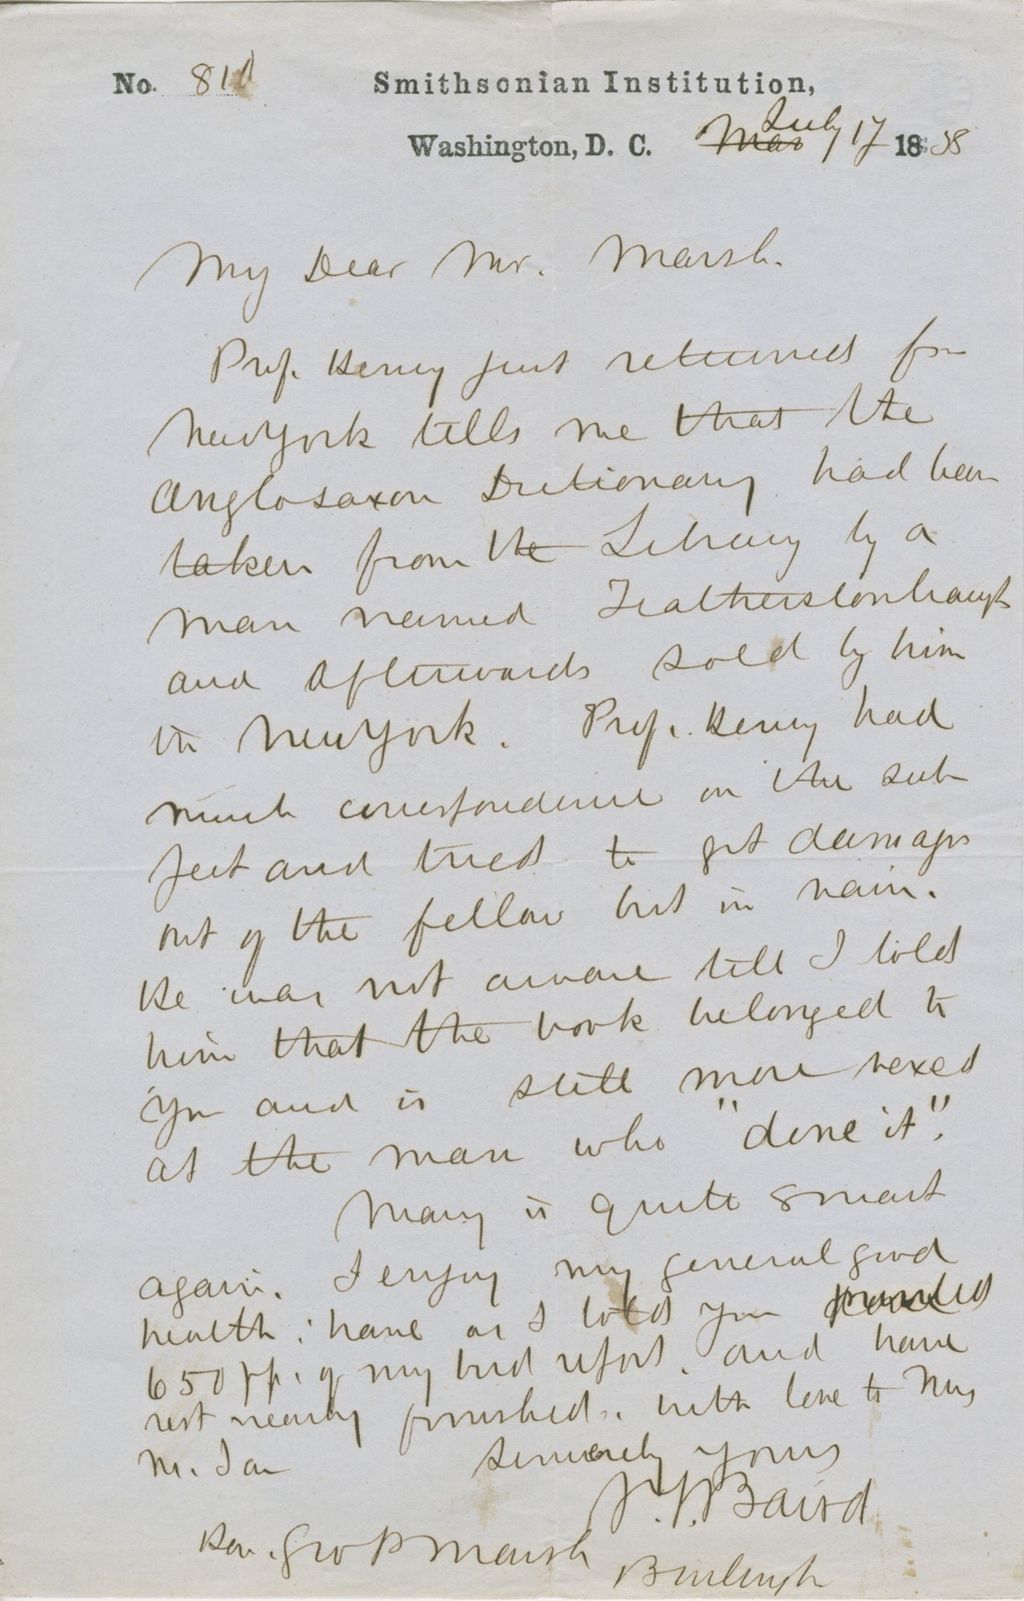 No. 810 Smithsonian Institution,
Washington, D. C. Mar July 17 1858
My Dear Mr. Marsh.
Prof. Henry just returned from
New York tells me that the
Anglosaxon Dictionary had been
taken from the Library by a
man named Featherstonhaugh
and afterwards sold by him
in New York. Prof. Henry had
much correspondence on the sub
ject and tried to get damages
out of the fellow but in vain.
He was not aware till I told
him that the book belonged to
you and is still more vexed
at the man who "done it".
Mary is quite smart
again. I enjoy my general good
health; have as I told you printed
650 pp. of my bird report. and have
rest nearly finished. with love to Mrs
M. I am Sincerely yours
S. F. Baird
Hon. Geo P Marsh
Burlingh